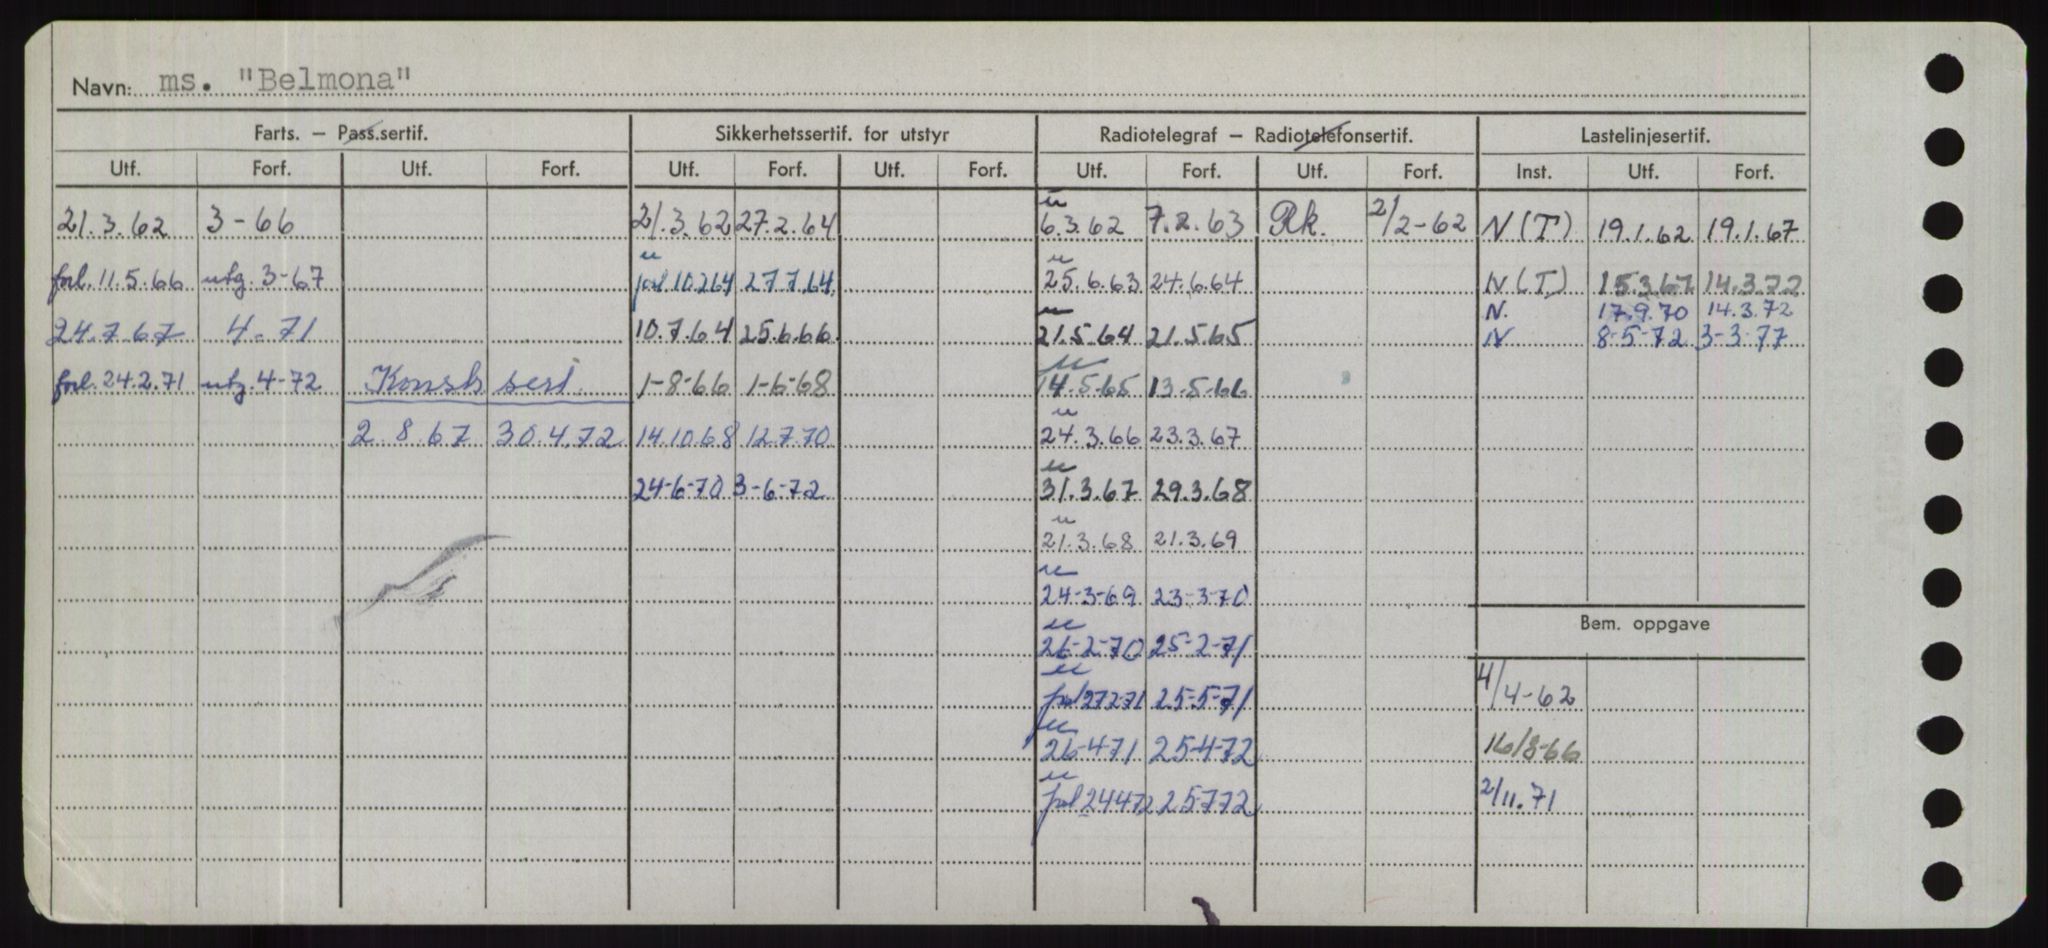 Navn: ms. "Belmona"
Farts. – Pass.sertif. Sikkerhetssertif. for utstyr Radiotelegraf – Radiotelefonsertif. Lastelinjesertif.
Utf. Forf. Utf. Forf. Utf. Forf. Utf. Forf. Utf. Forf. Utf. Forf. Inst. Utf. Forf.
21.3.62 3-66 21.3.62 27.2.64 u 6.3.62 7.2.63 Rk. 2/2-62 N(T) 19.1.62 19.1.67
forl. 11.5.66 utg. 3-67 u forl 10.2.64 27.7.64. u 25.6.63 24.6.64 N(T) 15.3.67 14.3.72
N. 17.9.70 14.3.72
24.7.67 4-71 10.7.64 25.6.66. u 21.5.64 21.5.65 N 8-5-72 3-3-77
forl. 24.2.71 utg. 4-72 Konstr sert. 1-8-66 1-6-68 u 14.5.65 13.5.66
2.8.67 30.4.72 14.10.68 12.7.70 u 24.3.66 23.3.67
24-6-70 3-6-72 u 31.3.67 29.3.68
u 21.3.68 21.3.69
u 24-3-69 23-3-70
Bem. oppgave
u 26-2-70 25-2-71
u forl 27271 25-5-71 4/4-62
u 26-4-71 25-4-72 16/8-66
u forl 24472 25772 2/11.71